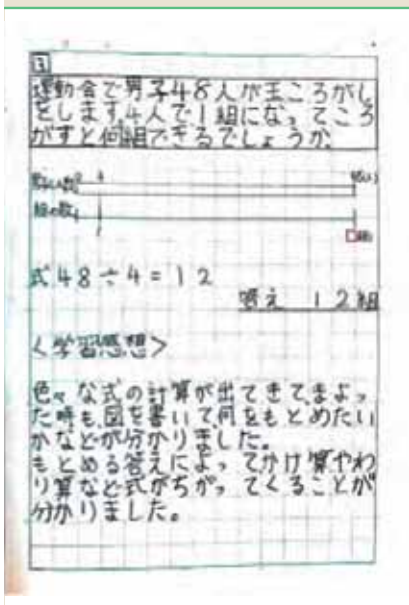 3
運動会で男子48人が玉ころがし
をします。4人で1組になってころ
がすと何組できるでしょうか。
4
組の数
1
□組
式48÷4=12
答え 12組
<学習感想>
色々な式の計算が出てきて、まよっ
た時も、図を書いて、何をもとめたい
かなどが分かりました。
もとめる答えによってかけ算やわ
り算など式がちがってくることが
分かりました。